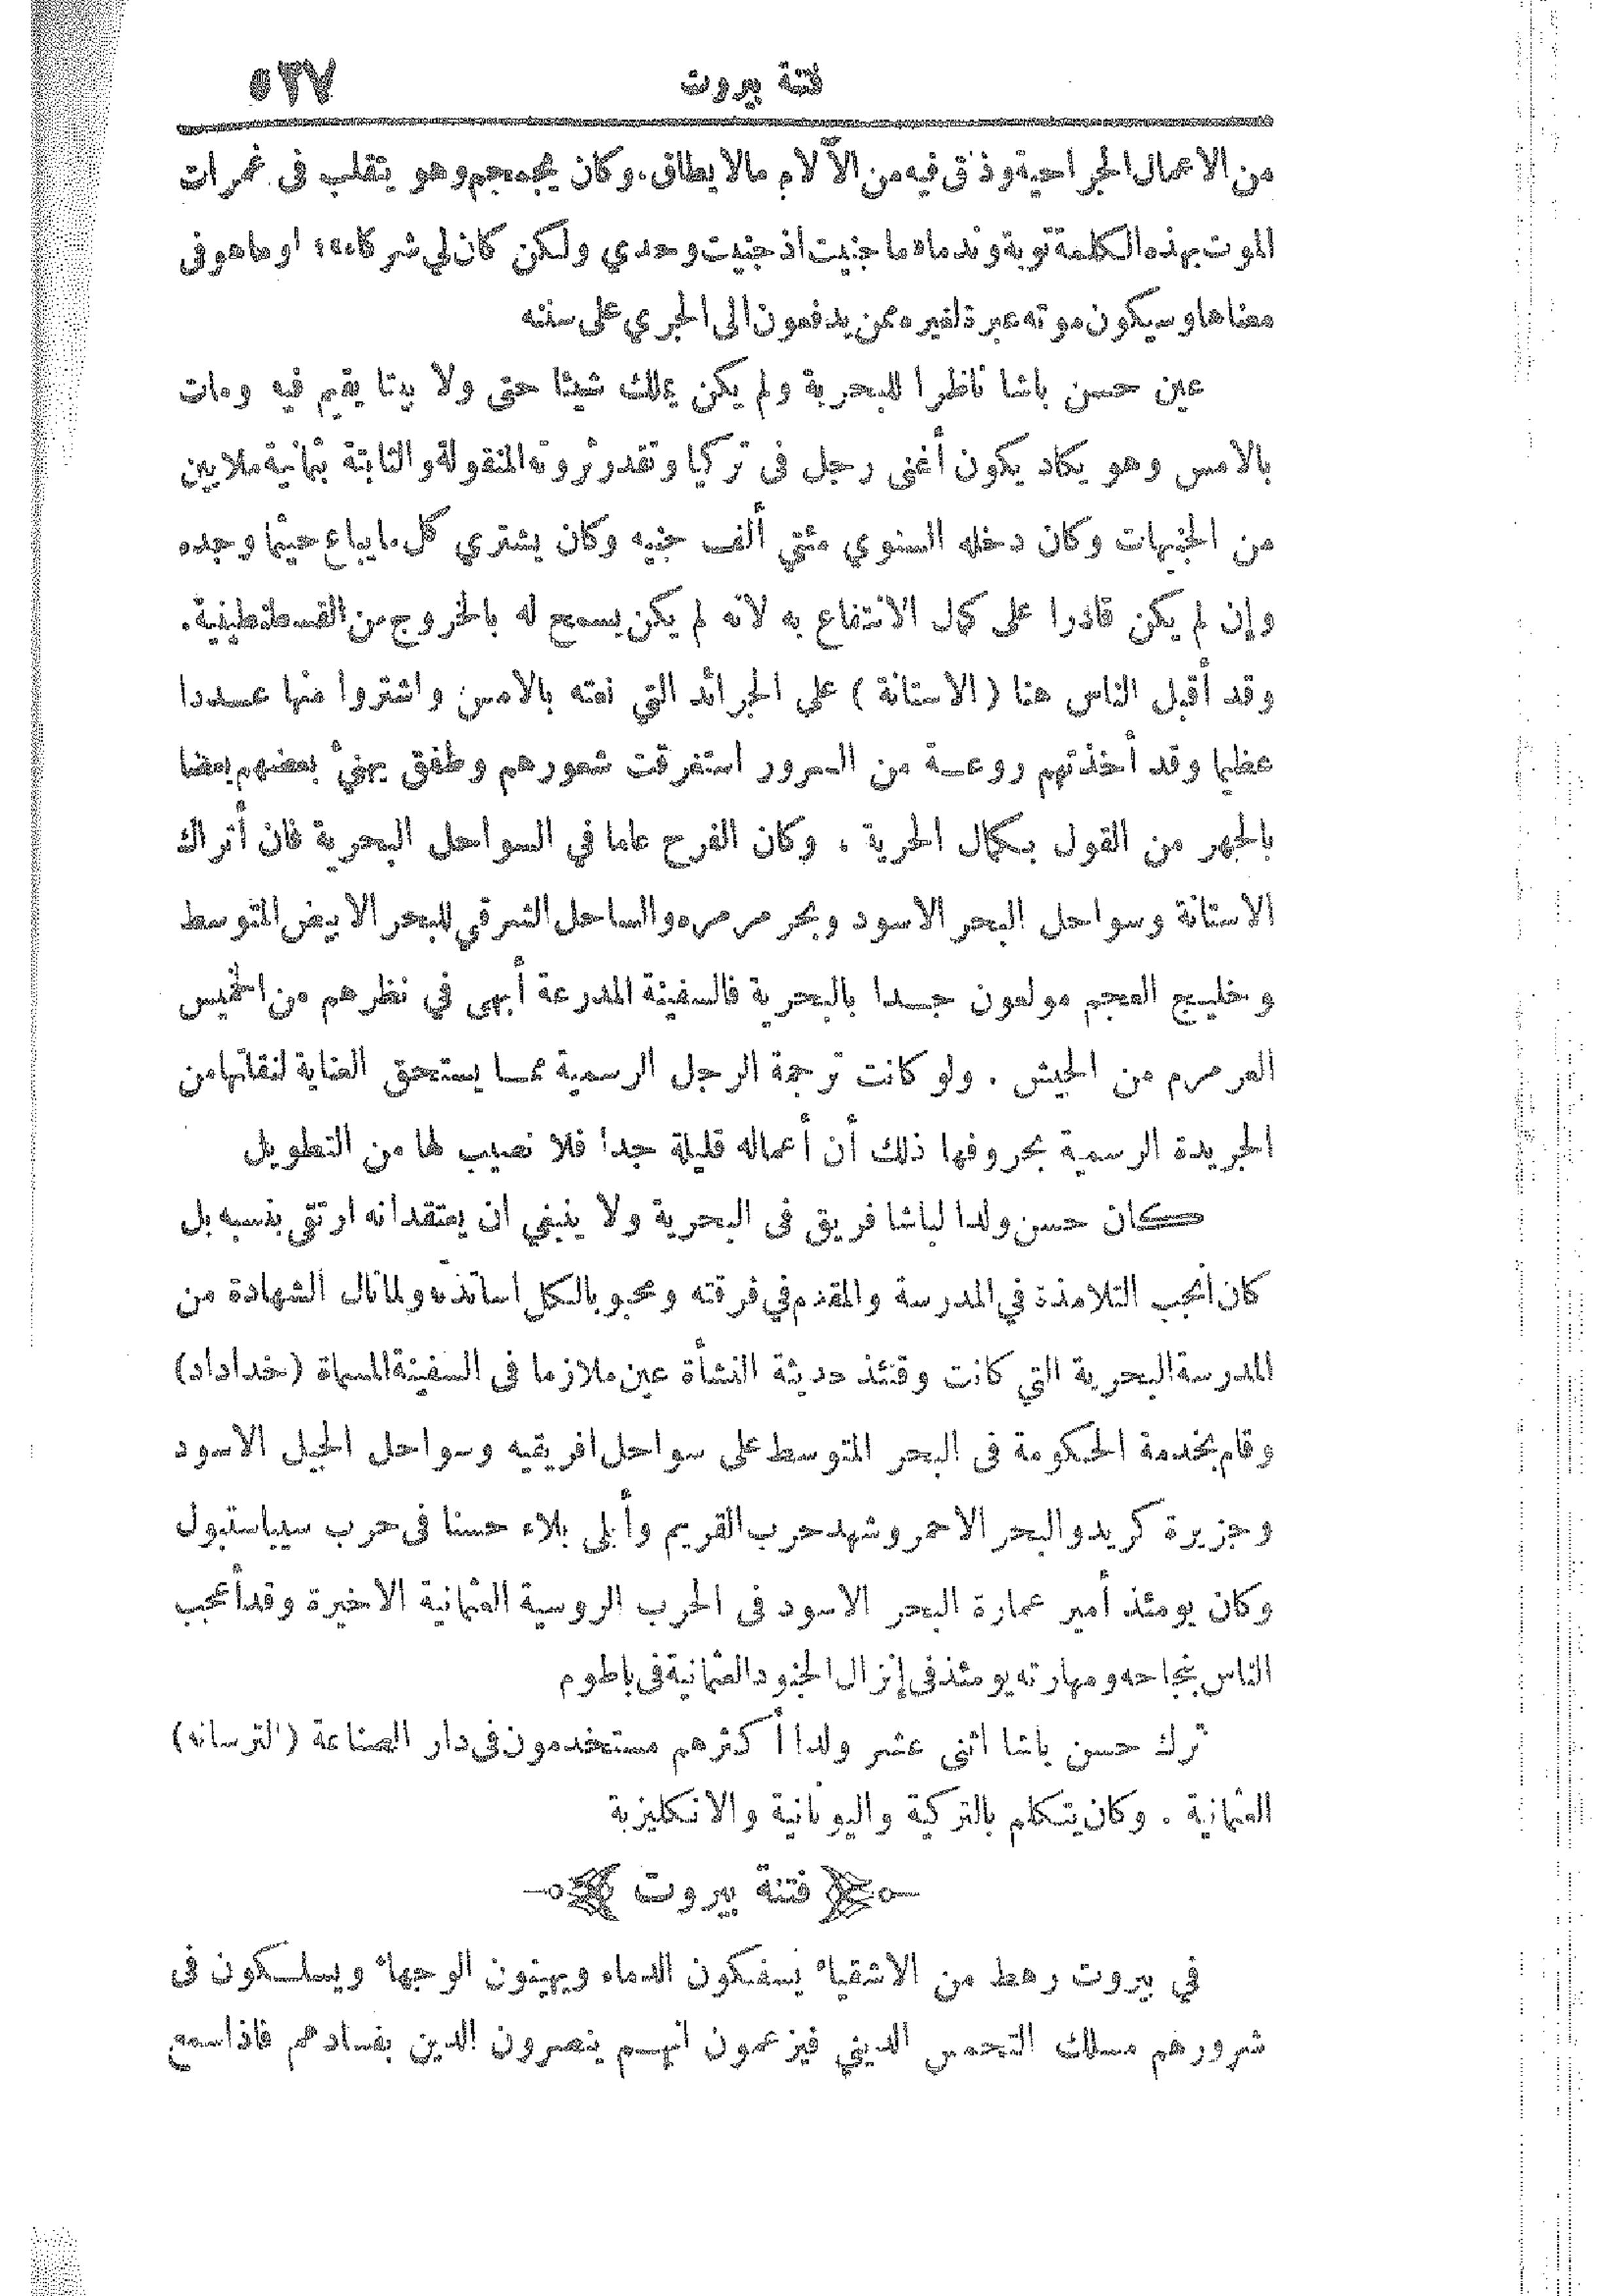 فتنة بيروت ٥٢٧
من الاعمال الجراحية وذاق فيه من الآلام مالا يطاق. وكان يجمجم وهو يتقلب فى غمرات
الموت بهذه الكلمة توبة وندما ما جنيت اذ جنيت وحدي ولكن كان لي شركاء اوما هو فى
معناها وسيكون موته عبرة لغيره ممن يدفعون الى الجري على سننه
عين حسن باشا ناظرا للبحرية ولم يكن يملك شيئا حتى ولا بيتا يقيم فيه ومات
بالامس وهو يكاد يكون أغنى رجل فى تركيا وتقدر ثروته المنقولة والثابتة بثمانية ملايين
من الجنيهات وكان دخله السنوي مئتي ألف جنيه وكان يشتري كل ما يباع حيثما وجده
وإن لم يكن قادرا على كمال الانتفاع به لانه لم يكن يسمح له بالخروج من القسطنطينية.
وقد أقبل الناس هنا ( الاستانة ) على الجرائد التي نعته بالامس واشتروا منها عددا
عظيما وقد أخذتهم روعة من السرور استغرقت شعورهم وطفق يهنئ بعضهم بعضا
بالجهر من القول بكمال الحرية ، وكان الفرح عاما في السواحل البحرية فان أتراك
الاستانة وسواحل البحر الاسود وبحر مرمره والساحل الشرقي للبحر الابيض المتوسط
وخليج العجم مولعون جدا بالبحرية فالسفينة المدرعة أبهى في نظرهم من الخميس
العرمرم من الجيش . ولو كانت ترجمة الرجل الرسمية مما يستحق العناية لنقلتها من
الجريدة الرسمية بحروفها ذلك أن أعماله قليلة جدا فلا نصيب لها من التطويل
كان حسن ولدا لباشا فريق فى البحرية ولا ينبغي ان يعتقد انه ارتقى بنسبه بل
كان أنجب التلامذة في المدرسة والمقدم في فرقته ومحبوبا لكل اساتذته ولما نال الشهادة من
المدرسة البحرية التي كانت وقتئذ حديثة النشأة عين ملازما فى السفينة المسماة (خداداد)
وقام بخدمة الحكومة فى البحر المتوسط على سواحل افريقيه وسواحل الجبل الاسود
وجزيرة كريد والبحر الاحمر وشهد حرب القريم وأبلى بلاء حسنا فى حرب سيباستبول
وكان يومئذ أمير عمارة البحر الاسود فى الحرب الروسية العثمانية الاخيرة وقد أعجب
الناس بنجاحه ومهارته يومئذ فى إنزال الجنود العثمانية فى باطوم
ترك حسن باشا اثنى عشر ولدا أكثرهم مستخدمون فى دار الصناعة (الترسانه)
العثمانية . وكان يتكلم بالتركية واليونانية والانكليزية
فتنة بيروت
في بيروت رهط من الاشقياء يسفكون الدماء ويهينون الوجهاء ويسلكون فى
شرورهم مسلك التحمس الديني فيزعمون انهم ينصرون الدين بفسادهم فاذا سمع